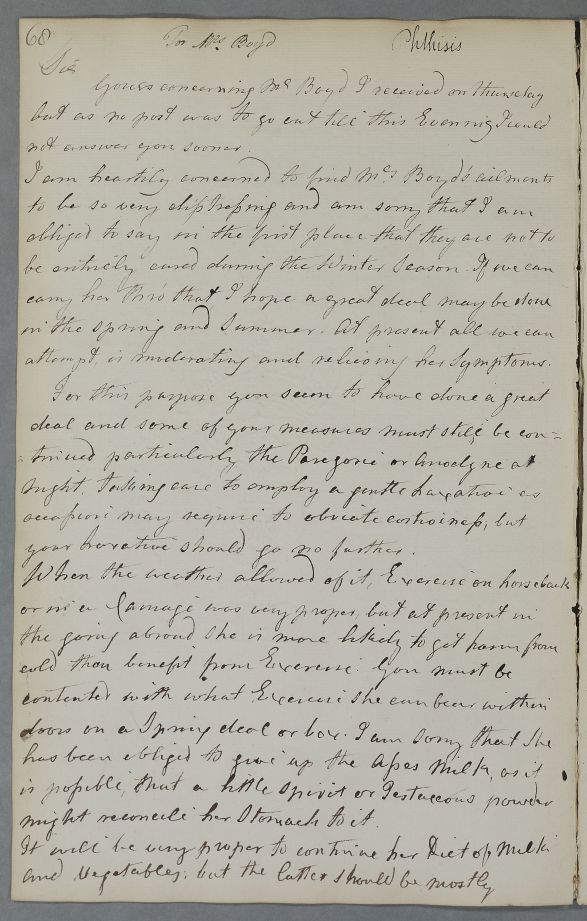 68 For Mrs. Boyd Phthisis
Sir
Yours concerning Mrs Boyd I received on thursday
but as no post was to go out till this Evening I could
not answer you sooner.
I am heartily concerned to find Mrs Boyd's ailments
to be so very distressing and am sorry that I am
obliged to say in the first place that they are not to
be entirely cured during the Winter Season. If we can
carry her thro' that I hope a great deal may be done
in the spring and Summer. At present all we can
attempt, is moderating and relieving her Symptoms.
For this purpose you seem to have done a great
deal and some of your measures must still be con=
=tinued particularly the Paregoric or Anodyne at
night, taking care to employ a gentle Laxative as
occasion may require to obviate costiveness, but
your Laxative should go no further.
When the weather allowed of it, Exercise on horseback
or in a Carriage was very proper, but at present in
the going abroad she is more likely to get harm from
cold than benefit from Exercise. You must be
contented with what Exercise she can bear within
doors on a Spring deal or box. I am sorry that she
has been obliged to give up the Asses Milk, as it
is possible, that a little Spirit or Testaceous powder
might reconcile her Stomach to it.
It will be very proper to continue her Diet of Milk
and Vegetables, but the latter should be mostly